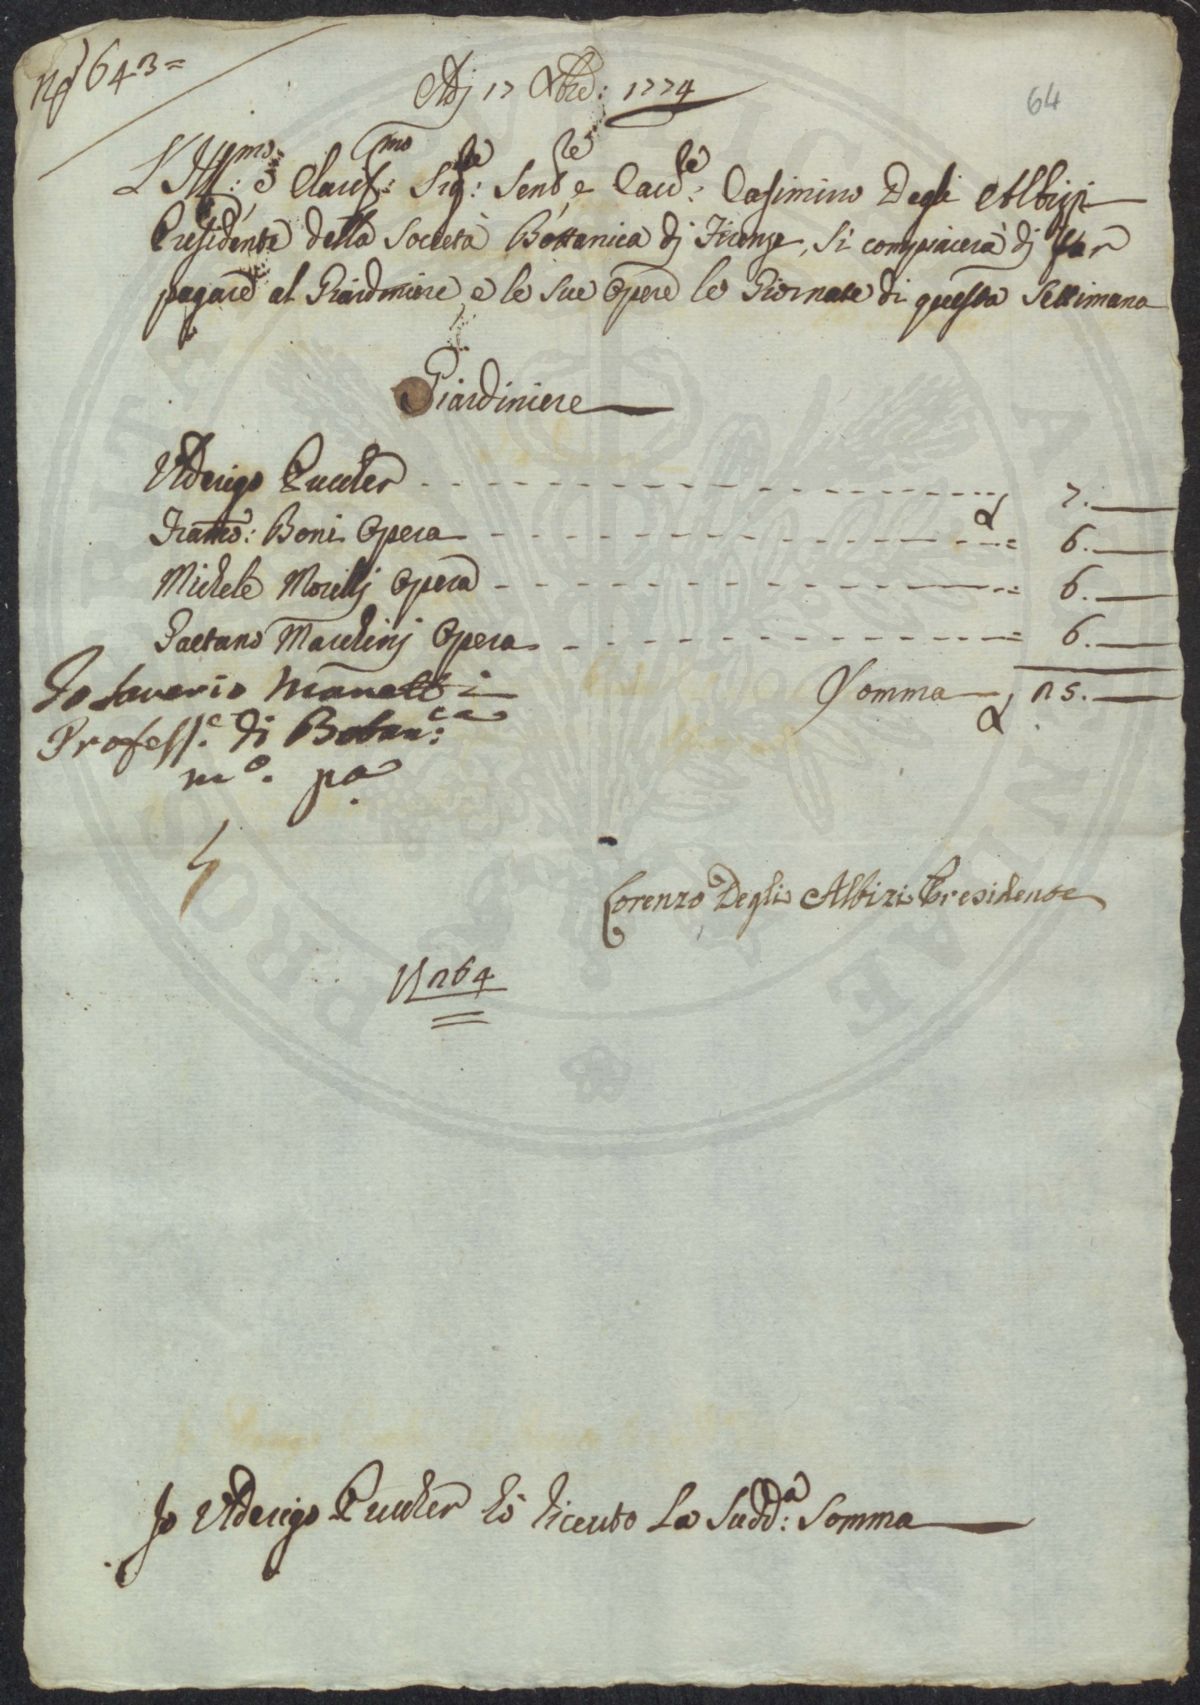 N.o 643=
Adj 17 Xbre: 1774
64
L'Ill:mo e Clariss:mo Sig:re Senb:re e Cav:re Casimirro Degli Albizzi
Presidente della Società Bottanica dj Firenze, Si compiacerà dj far
pagare al Giardiniere, e le Sue Opere le Giornate di questa Settimana
Giardiniere
Uderigo Pruchler 7.
Franco: Boni Opera = 6.
Michele Morellj Opera = 6.
Gaetano Marchinj Opera = 6.
Somma 25.
Io Saverio Manetti
Profess.e di Botan:ca
m.o pa
Lorenzo Degli Albizi Presidente
N 264
Io Uderigo Pruchler hò ricevto La Sudd:a Somma